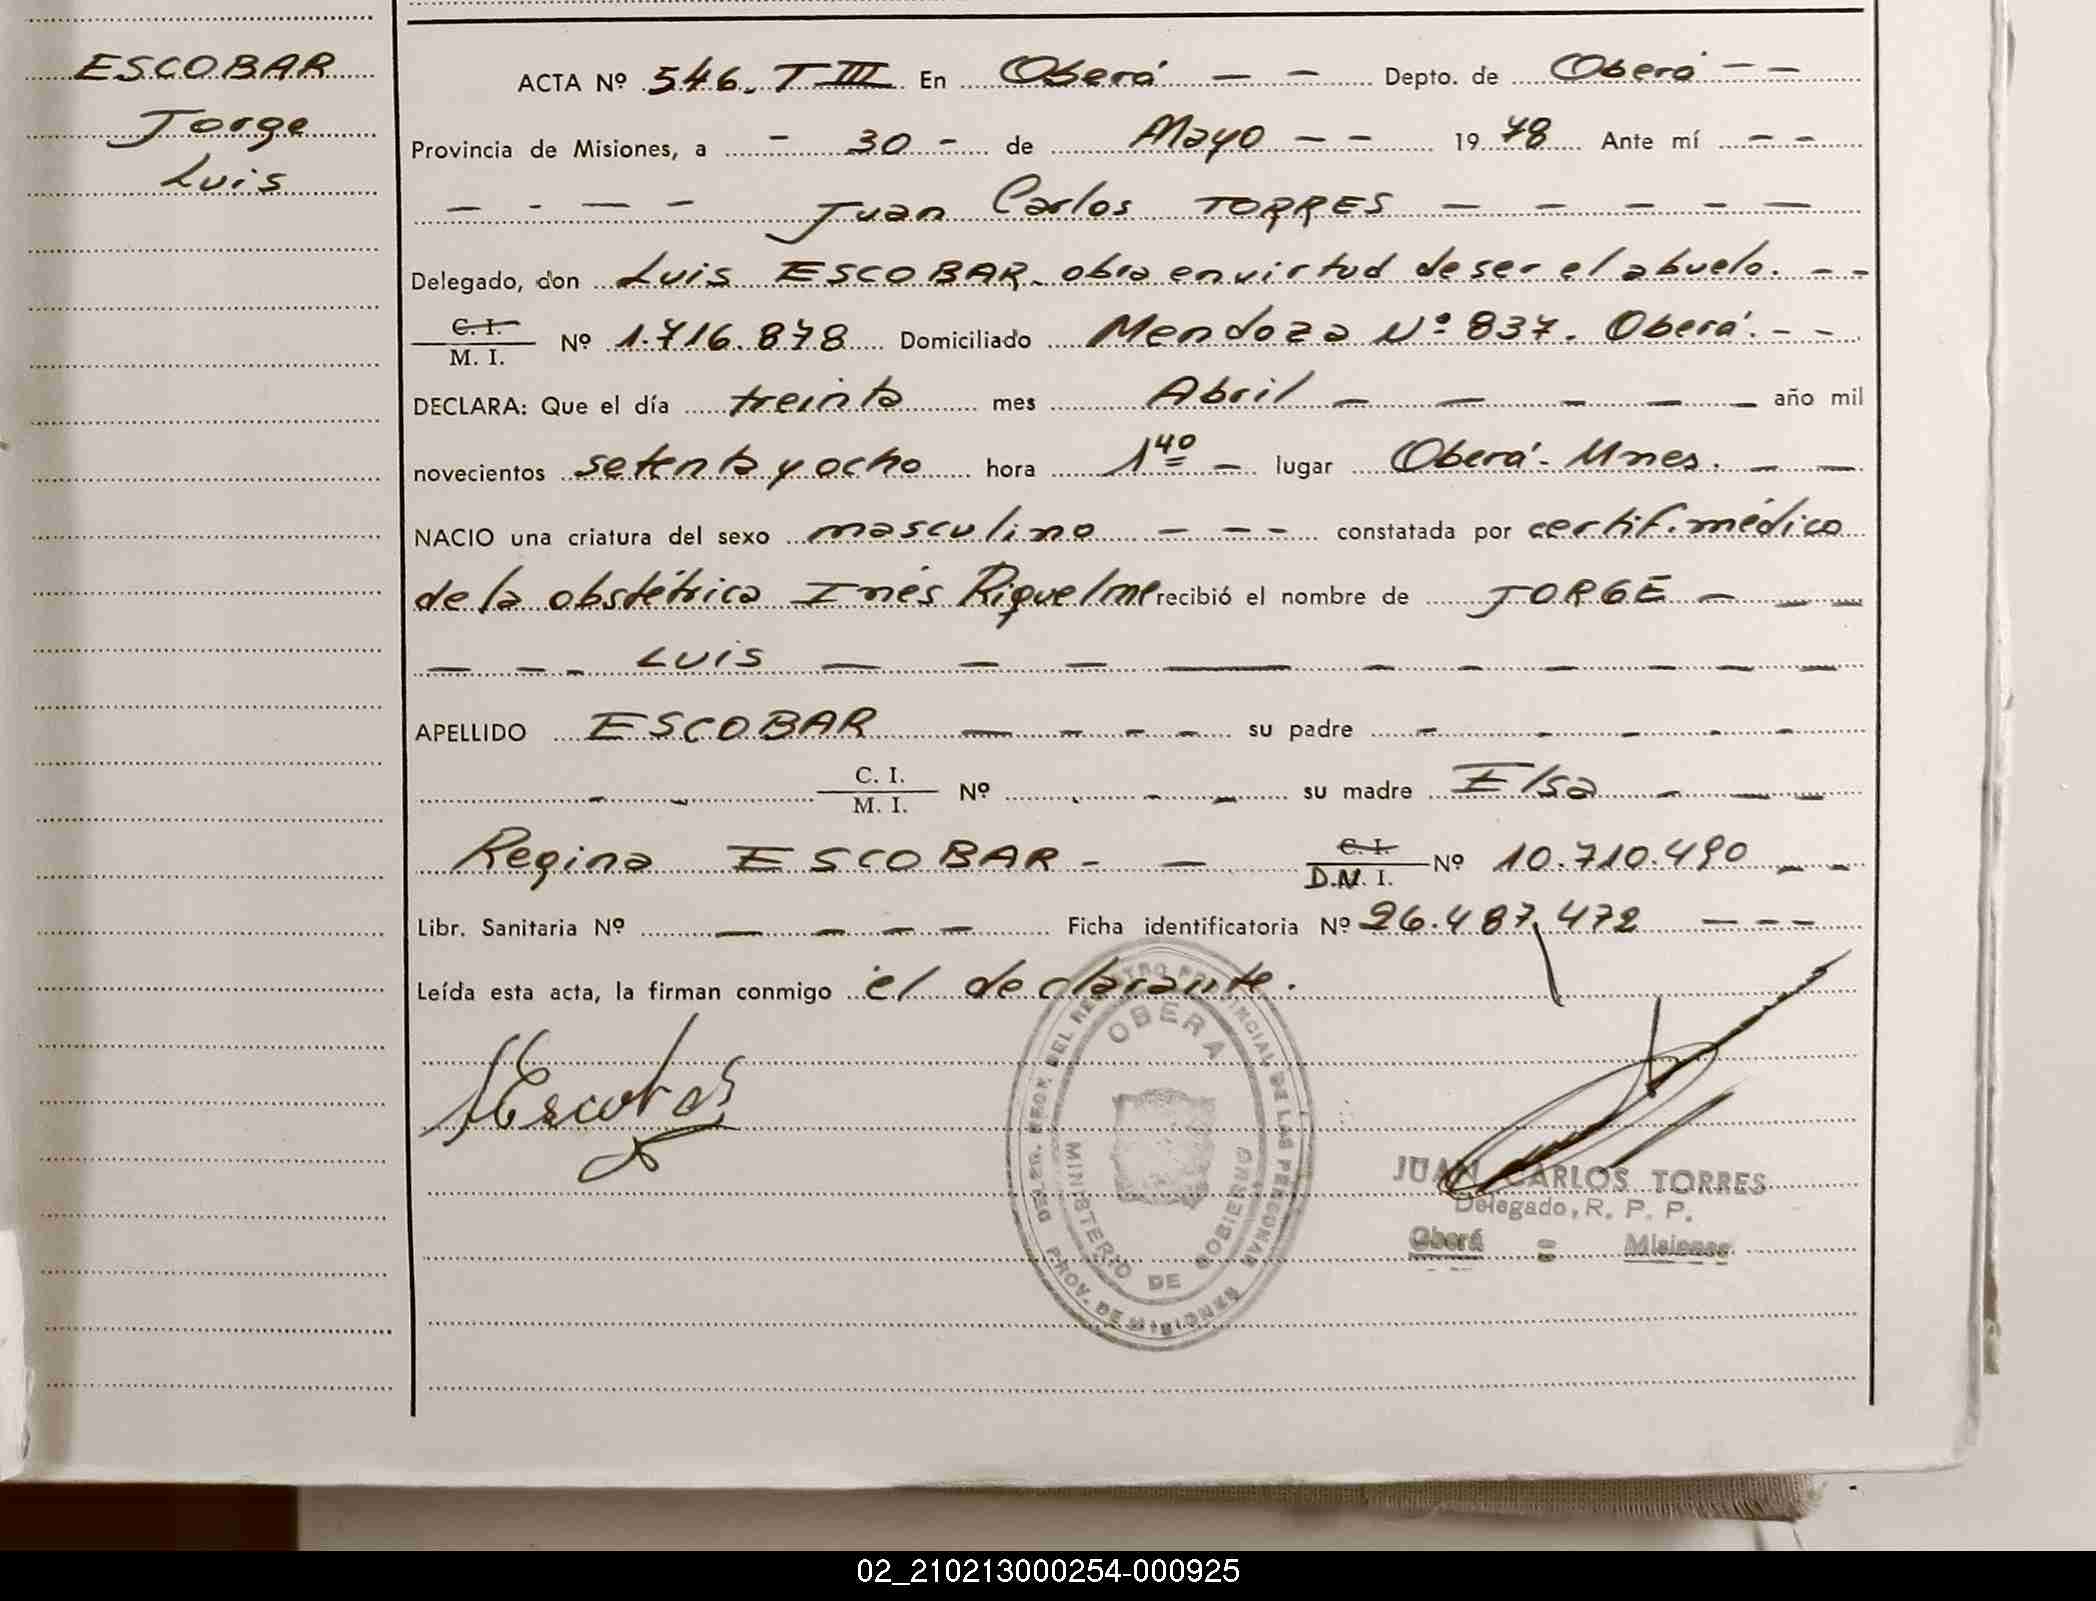 ESCOBAR
Jorge
Luis
ACTA Nº 546. T III En Oberá - - Depto. de Oberá - -
Provincia de Misiones, a - 30 - de Mayo - - 1978 Ante mí - -
- - - - Juan Carlos TORRES - - - - -
Delegado, don Luis ESCOBAR. obra en virtud de ser el abuelo. - -
C. I.
M. I. Nº 1.716.878 Domiciliado Mendoza Nº 837. Oberá. - -
DECLARA: Que el día treinta mes Abril - - - - - año mil
novecientos setenta y ocho hora 1 40 - lugar Oberá - Mnes. - -
NACIO una criatura del sexo masculino - - - constatada por certif. médico
de la obstétrica Inés Riquelme recibió el nombre de JORGE - - -
- - - LUIS - - - - - - - - - -
APELLIDO ESCOBAR - - - - su padre - - - - -
- - C. I.
M. I. Nº - - - su madre Elsa - - -
Regina ESCOBAR - - C. I.
D.N. I. Nº 10.710.490 - -
Libr. Sanitaria Nº - - - - Ficha identificatoria Nº 26.487.472 - - -
Leída esta acta, la firman conmigo el declarante.
Escobar
OBERA
MINISTERIO DE GOBIERNO
PROV. DE MISIONES
JUAN CARLOS TORRES
Delegado, R. P. P.
Oberá = Misiones
02_210213000254-000925